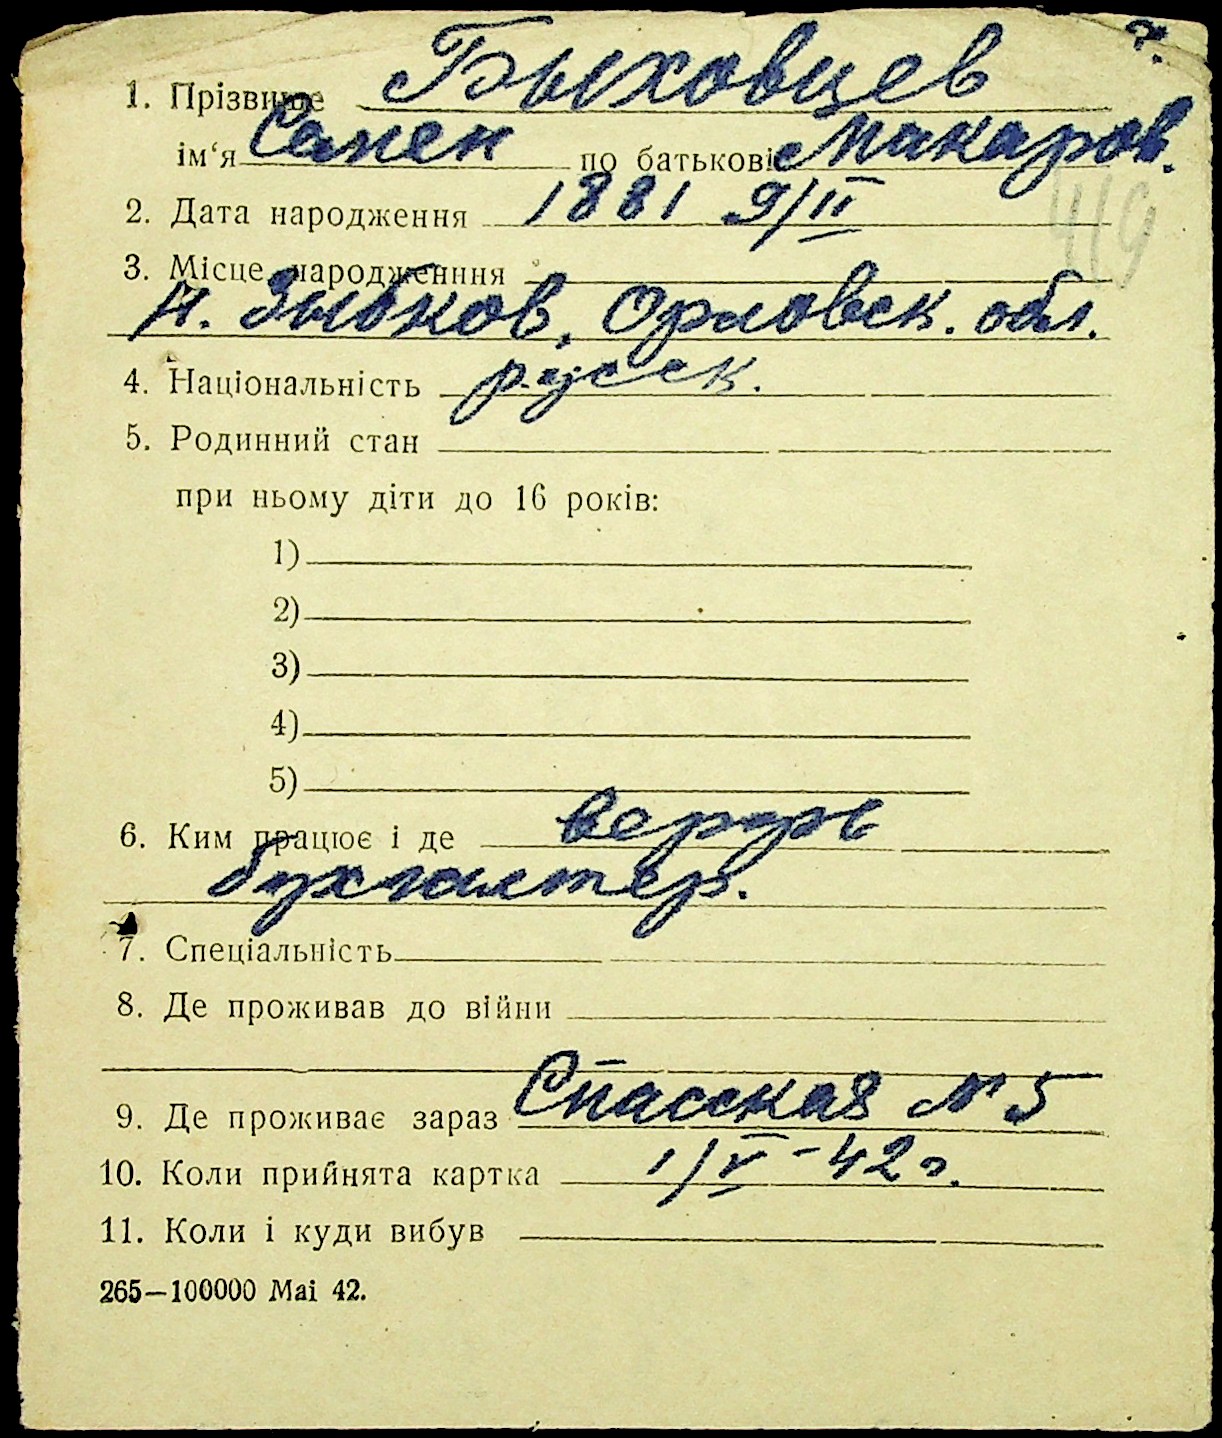 1. Прізвище Быховцев
ім‘я Семен по батькові Макаров.
2. Дата народження 1881 9/II
3. Місце народженння
Н. Зыбков, Орловск. обл.
4. Національність русск.
5. Родинний стан
при ньому діти до 16 років:
1)
2)
3)
4)
5)
6. Ким працює і де
бухгалтер.
7. Спеціальність
8. Де проживав до війни
9. Де проживає зараз Спасская № 5
10. Коли прийнята картка 1/V-42 г.
11. Коли і куди вибув
265—100000 Маі 42.
419